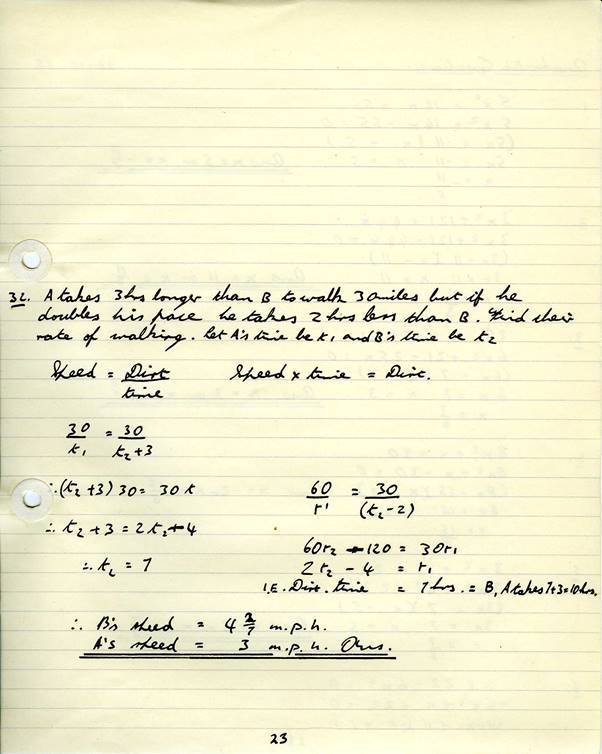 32. A takes 3hrs longer than B to walk 30 miles but if he
doubles his pace he takes 2 hrs less than B. Find their
rate of walking. Let A's time be t, and B's time be t2
Speed = Dist Speed x time = Dist.
time
30 = 30
t1 t2+3
∴(t2+3) 30 = 30 t 60 = 30
t' (t2-2)
∴ t2 + 3 = 2t2 - 4
60t2 - 120 = 30t1
∴ t2 = 7 2 t2 - 4 = t1
I.E. Dist. time = 7hrs. = B, A takes 7+3=10hrs.
∴ B's speed = 4 2/7 m.p.h.
A's speed = 3 m.p.h. Ans.
23